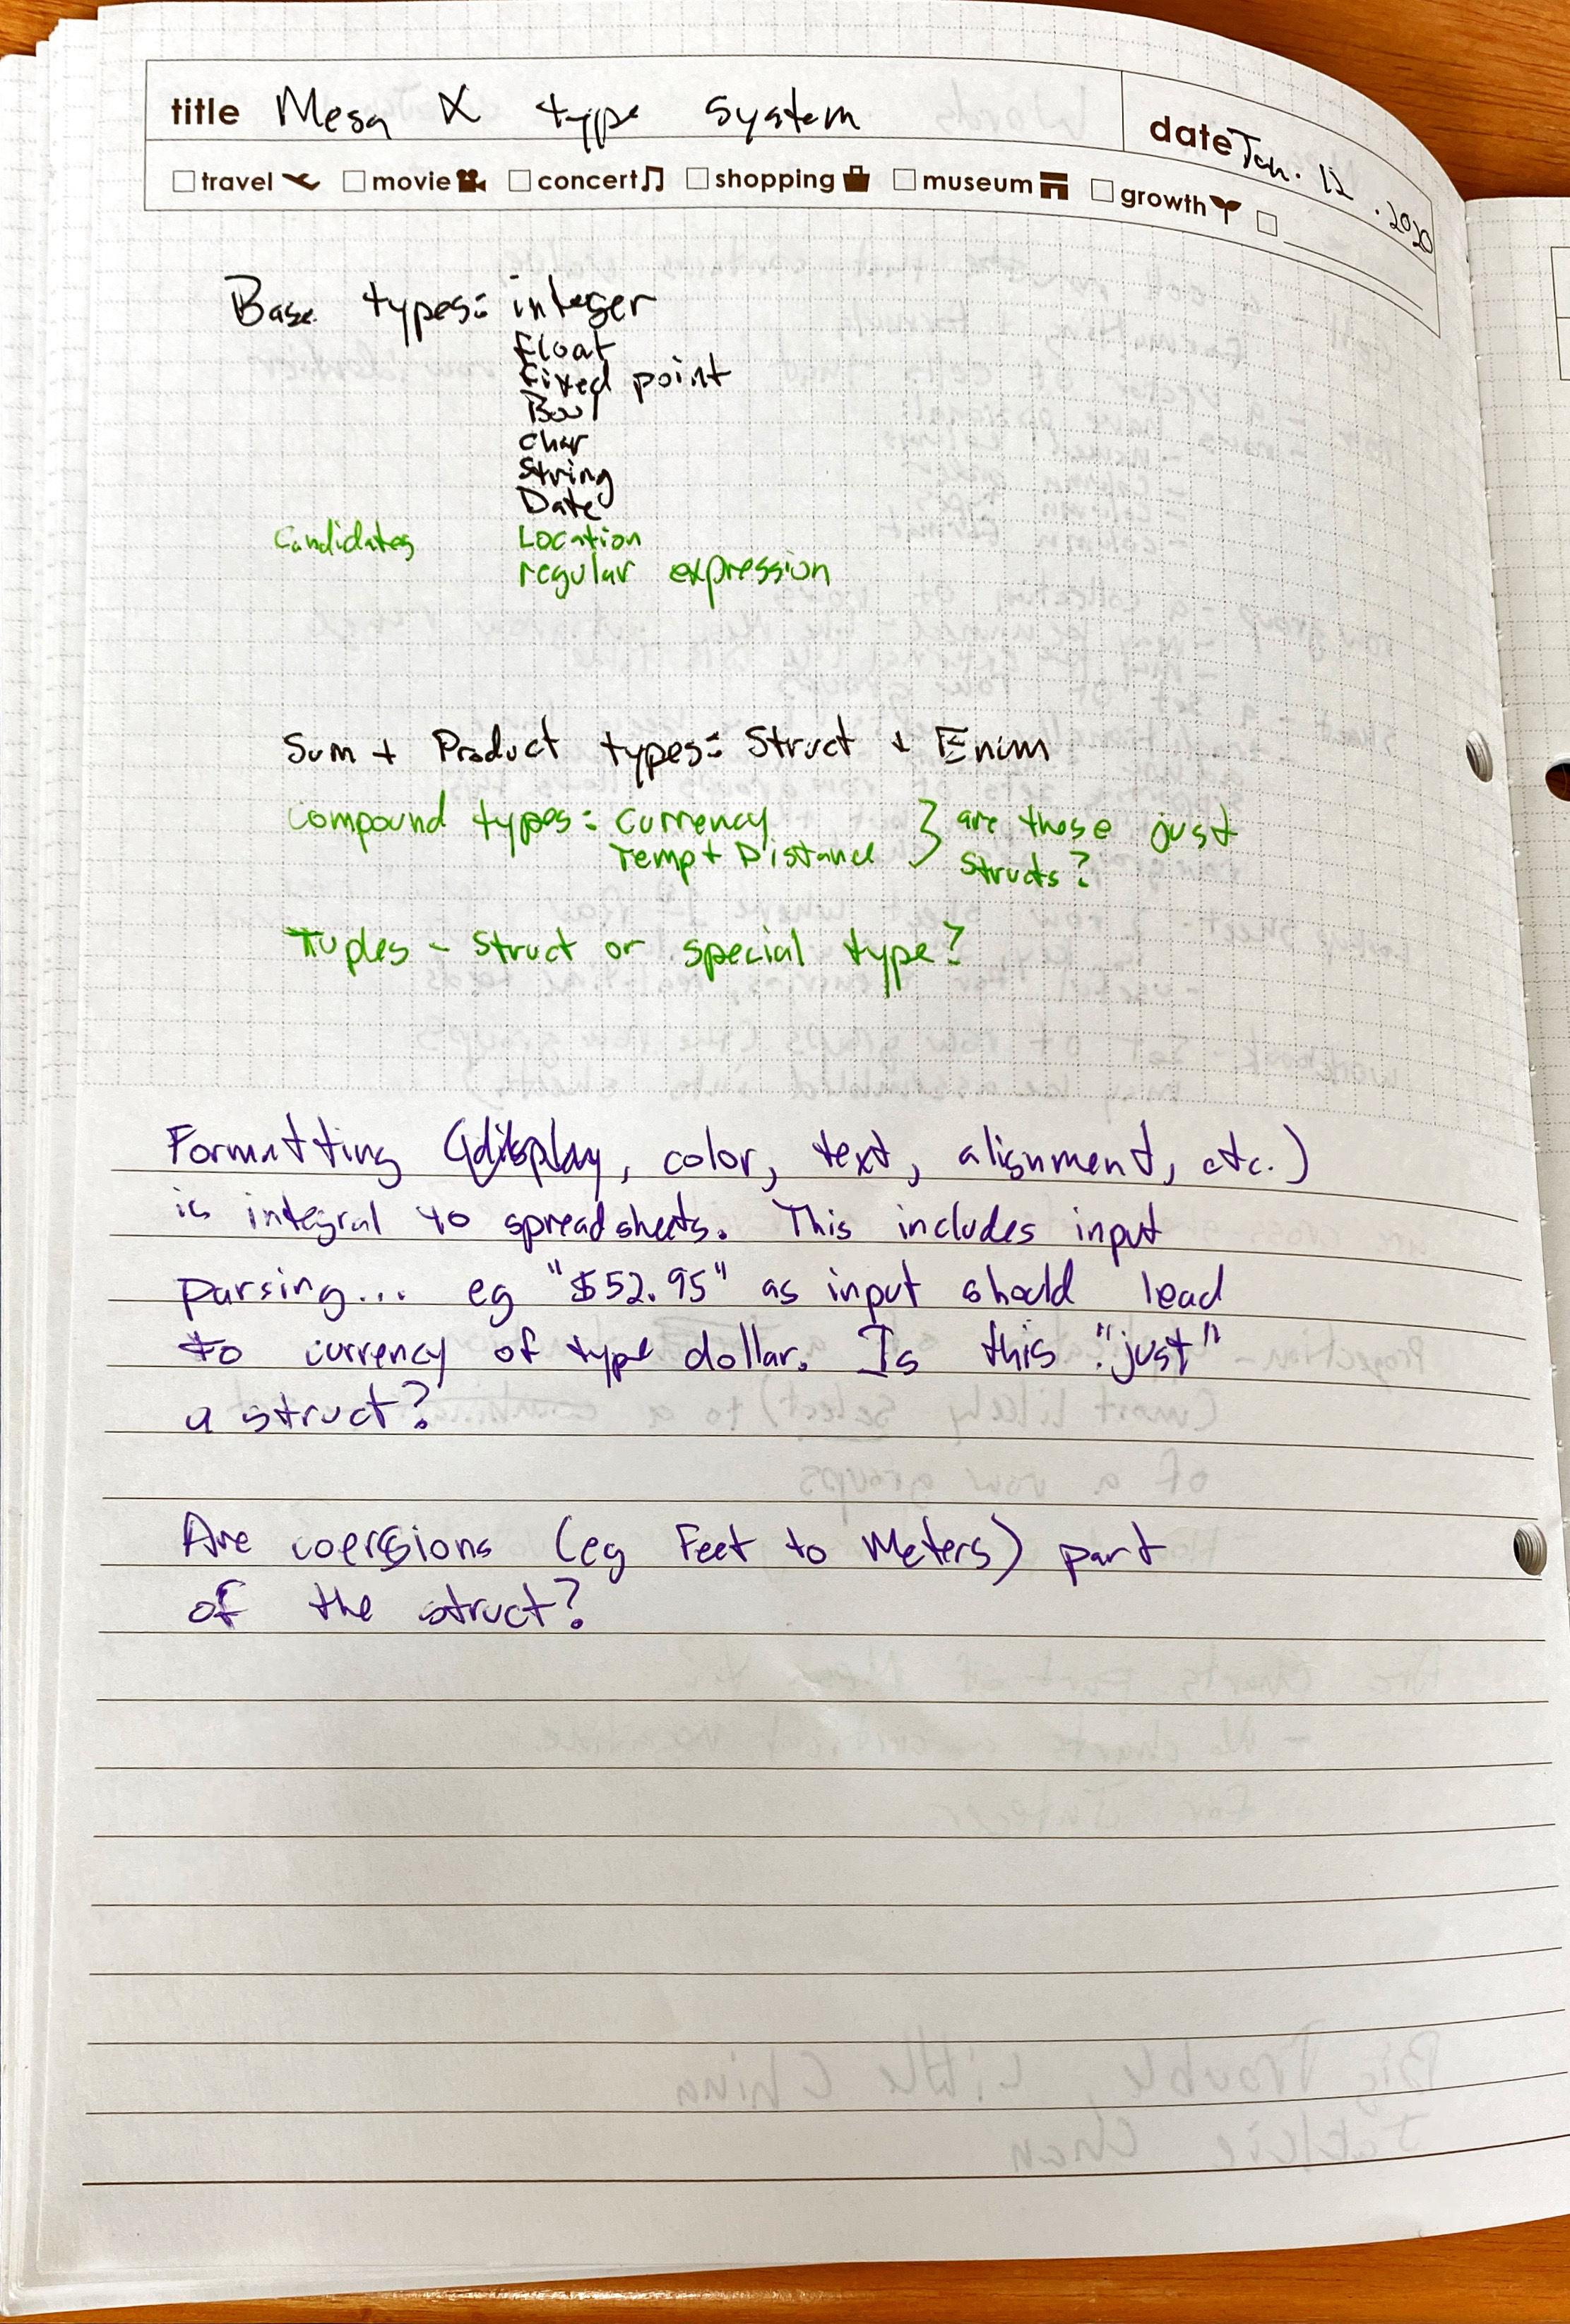 title Mesa X type system
date Jan. 12 .2020
travel movie concert shopping museum growth
Base types: integer
float
fixed point
Bool
char
String
Date
Candidates Location
regular expression
Sum + Product types: Struct + Enum
Compound types: Currency } are these just
Temp + Distance structs?
Tuples - Struct or special type?
Formatting (display, color, text, alignment, etc.)
is integral to spreadsheets. This includes input
parsing... eg "$52.95" as input should lead
to currency of type dollar. Is this "just"
a struct?
Are coercions (eg Feet to Meters) part
of the struct?